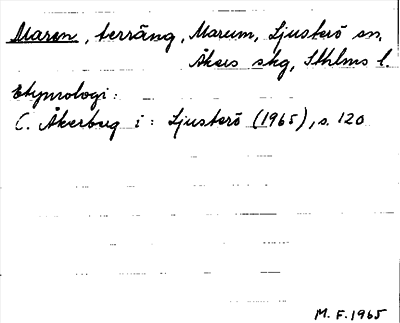 Maren, terräng, Marum, Ljusterö sn,
Åkers skg, Sthlms l.
Etymologi:
C. Åkerbug i: Ljusterö (1965), s. 120
M. F. 1965